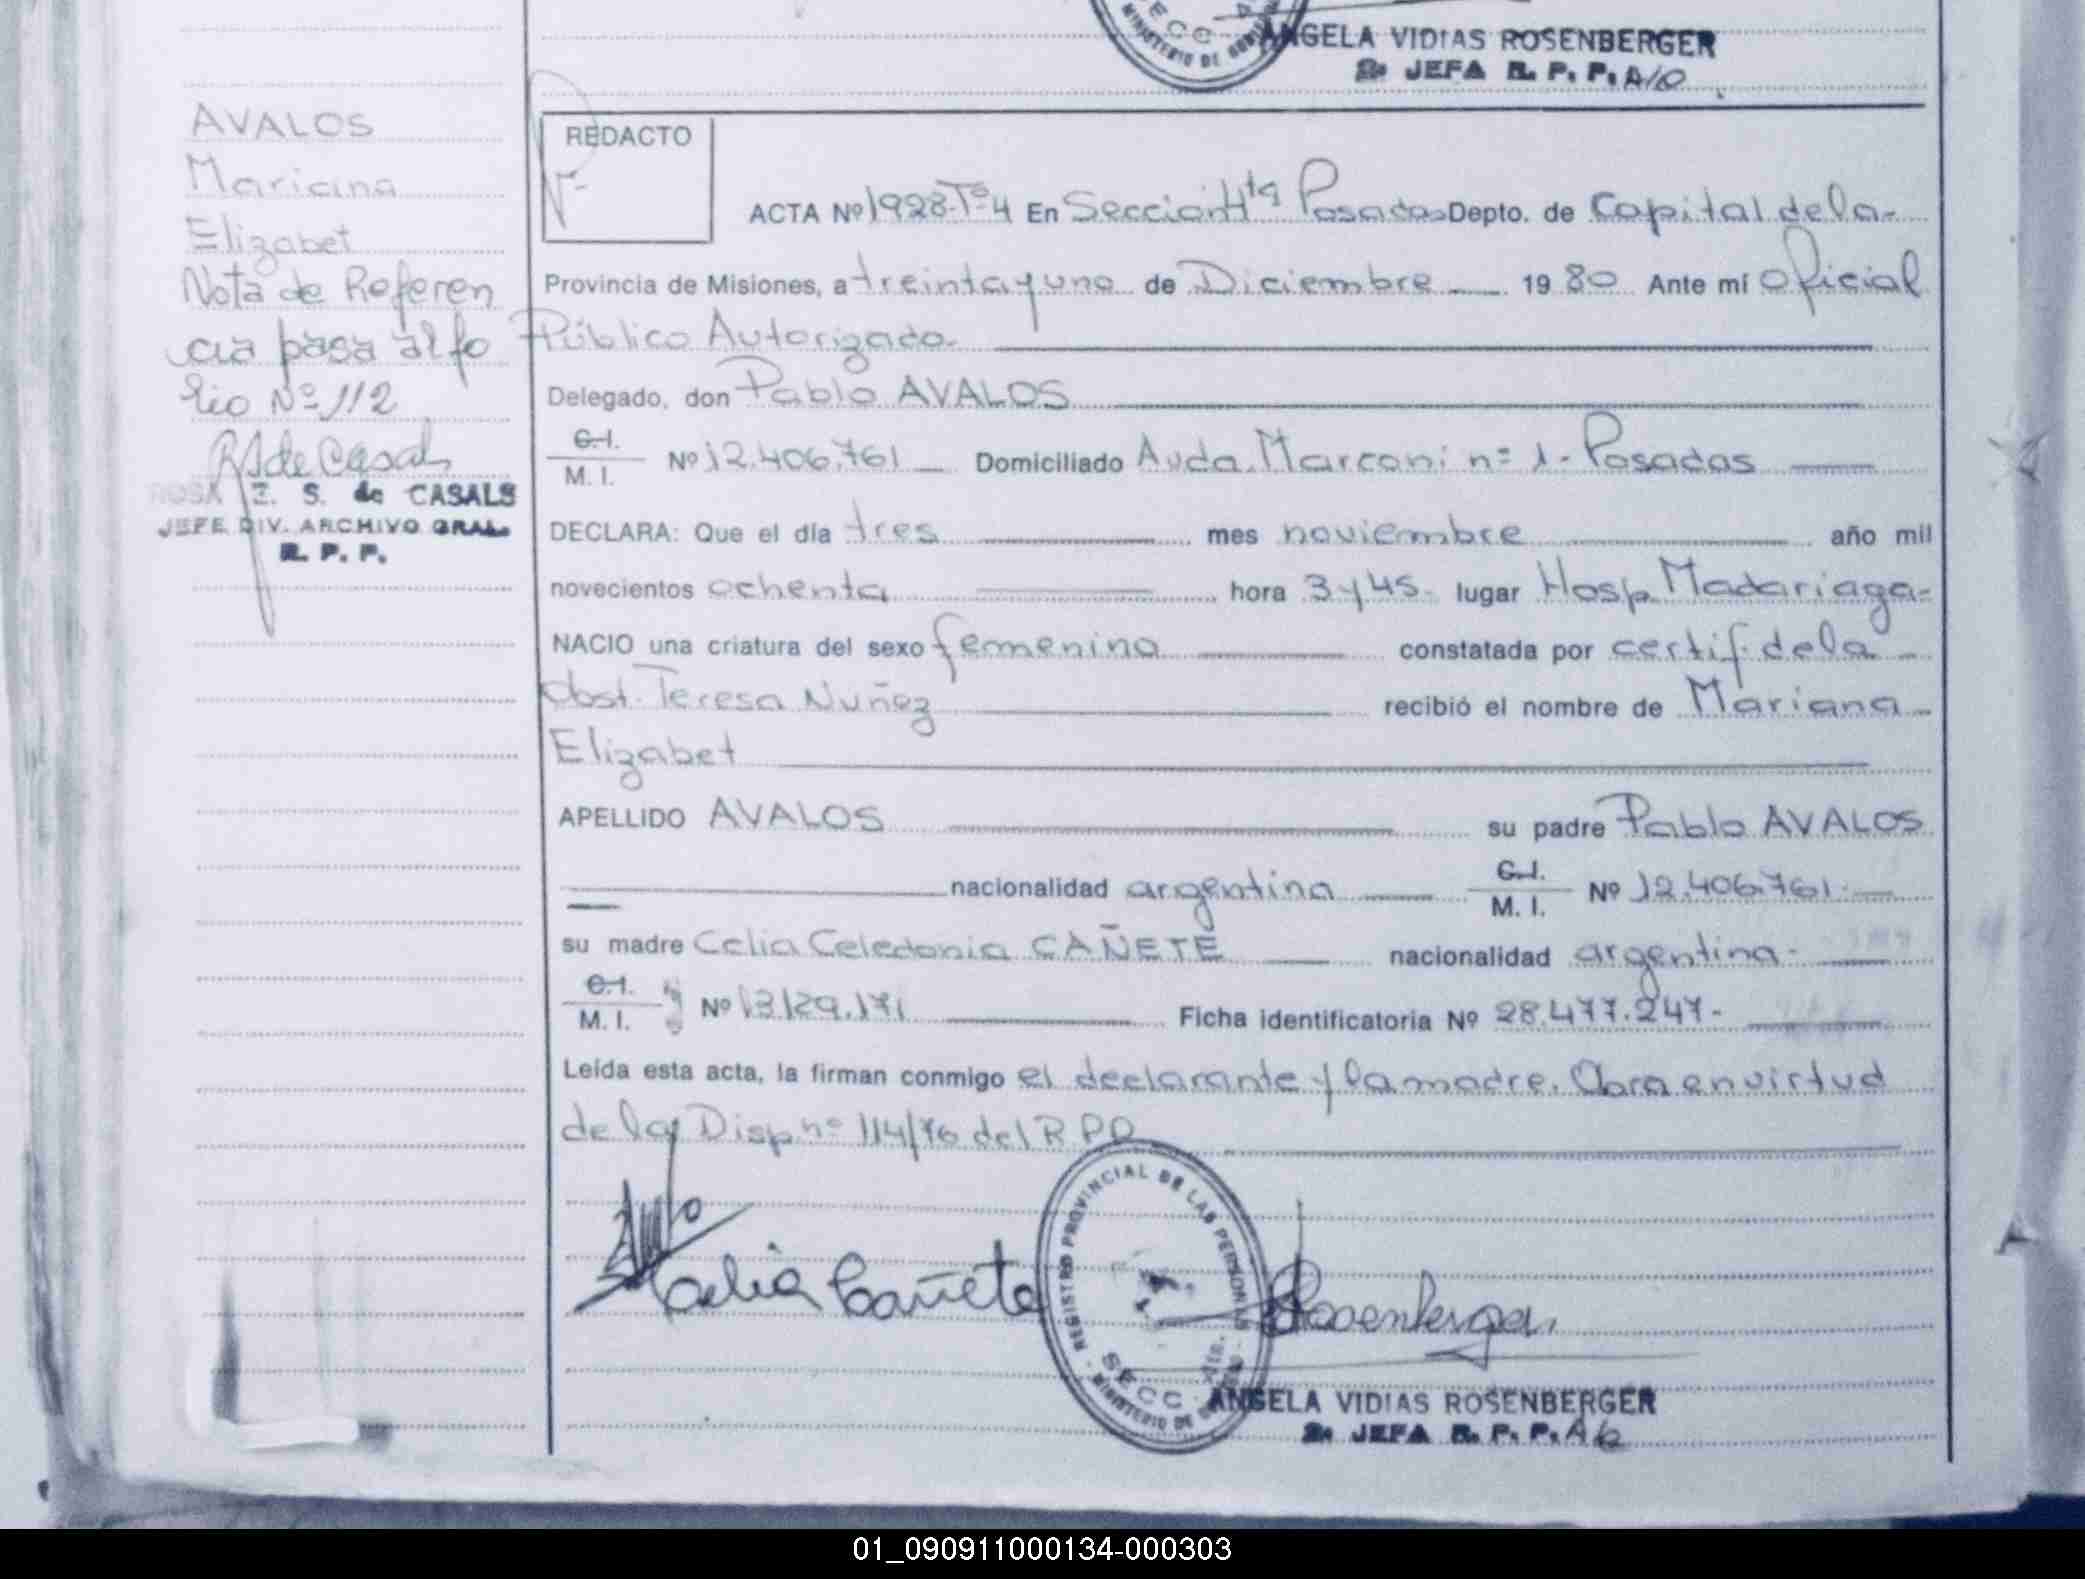 ANGELA VIDIAS ROSENBERGER
2a JEFA R. P. P. A/C
SECC
MINISTERIO DE GOBIERNO
AVALOS
Mariana
Elizabet
Nota de Referen
cia pasa al fo
lio Nº 112
RS de Casals
ROSA Z. S. de CASALS
JEFE DIV. ARCHIVO GRAL.
R. P. P.
REDACTO
ACTA Nº 1928-Tº4 En Sección 4ta Posadas Depto. de Capital de la-
Provincia de Misiones, a treinta y uno de Diciembre 19 80 Ante mí Oficial
Público Autorizado.
Delegado, don Pablo AVALOS
C.I.
M. I. Nº 12.406.761 Domiciliado Avda. Marconi nº 1- Posadas
DECLARA: Que el día tres mes noviembre año mil
novecientos ochenta hora 3 y 45- lugar Hosp. Madariaga-
NACIO una criatura del sexo femenino constatada por certif. de la
Obst. Teresa Nuñez recibió el nombre de Mariana
Elizabet
APELLIDO AVALOS su padre Pablo AVALOS
nacionalidad argentina C.I. M. I. Nº 12.406.761.
su madre Celia Celedonia CAÑETE nacionalidad argentina-
C.I.
M. I. Nº 13.129.171 Ficha identificatoria Nº 28.477.247-
Leída esta acta, la firman conmigo el declarante y la madre. Obra en virtud
de la Disp. nº 114/76 del R.P.P.
Celia Cañete
Rosenberger
REGISTRO PROVINCIAL DE LAS PERSONAS
SECC. 4ta.
MINISTERIO DE GOBIERNO
ANGELA VIDIAS ROSENBERGER
2a JEFA R. P. P. A/c
01_090911000134-000303